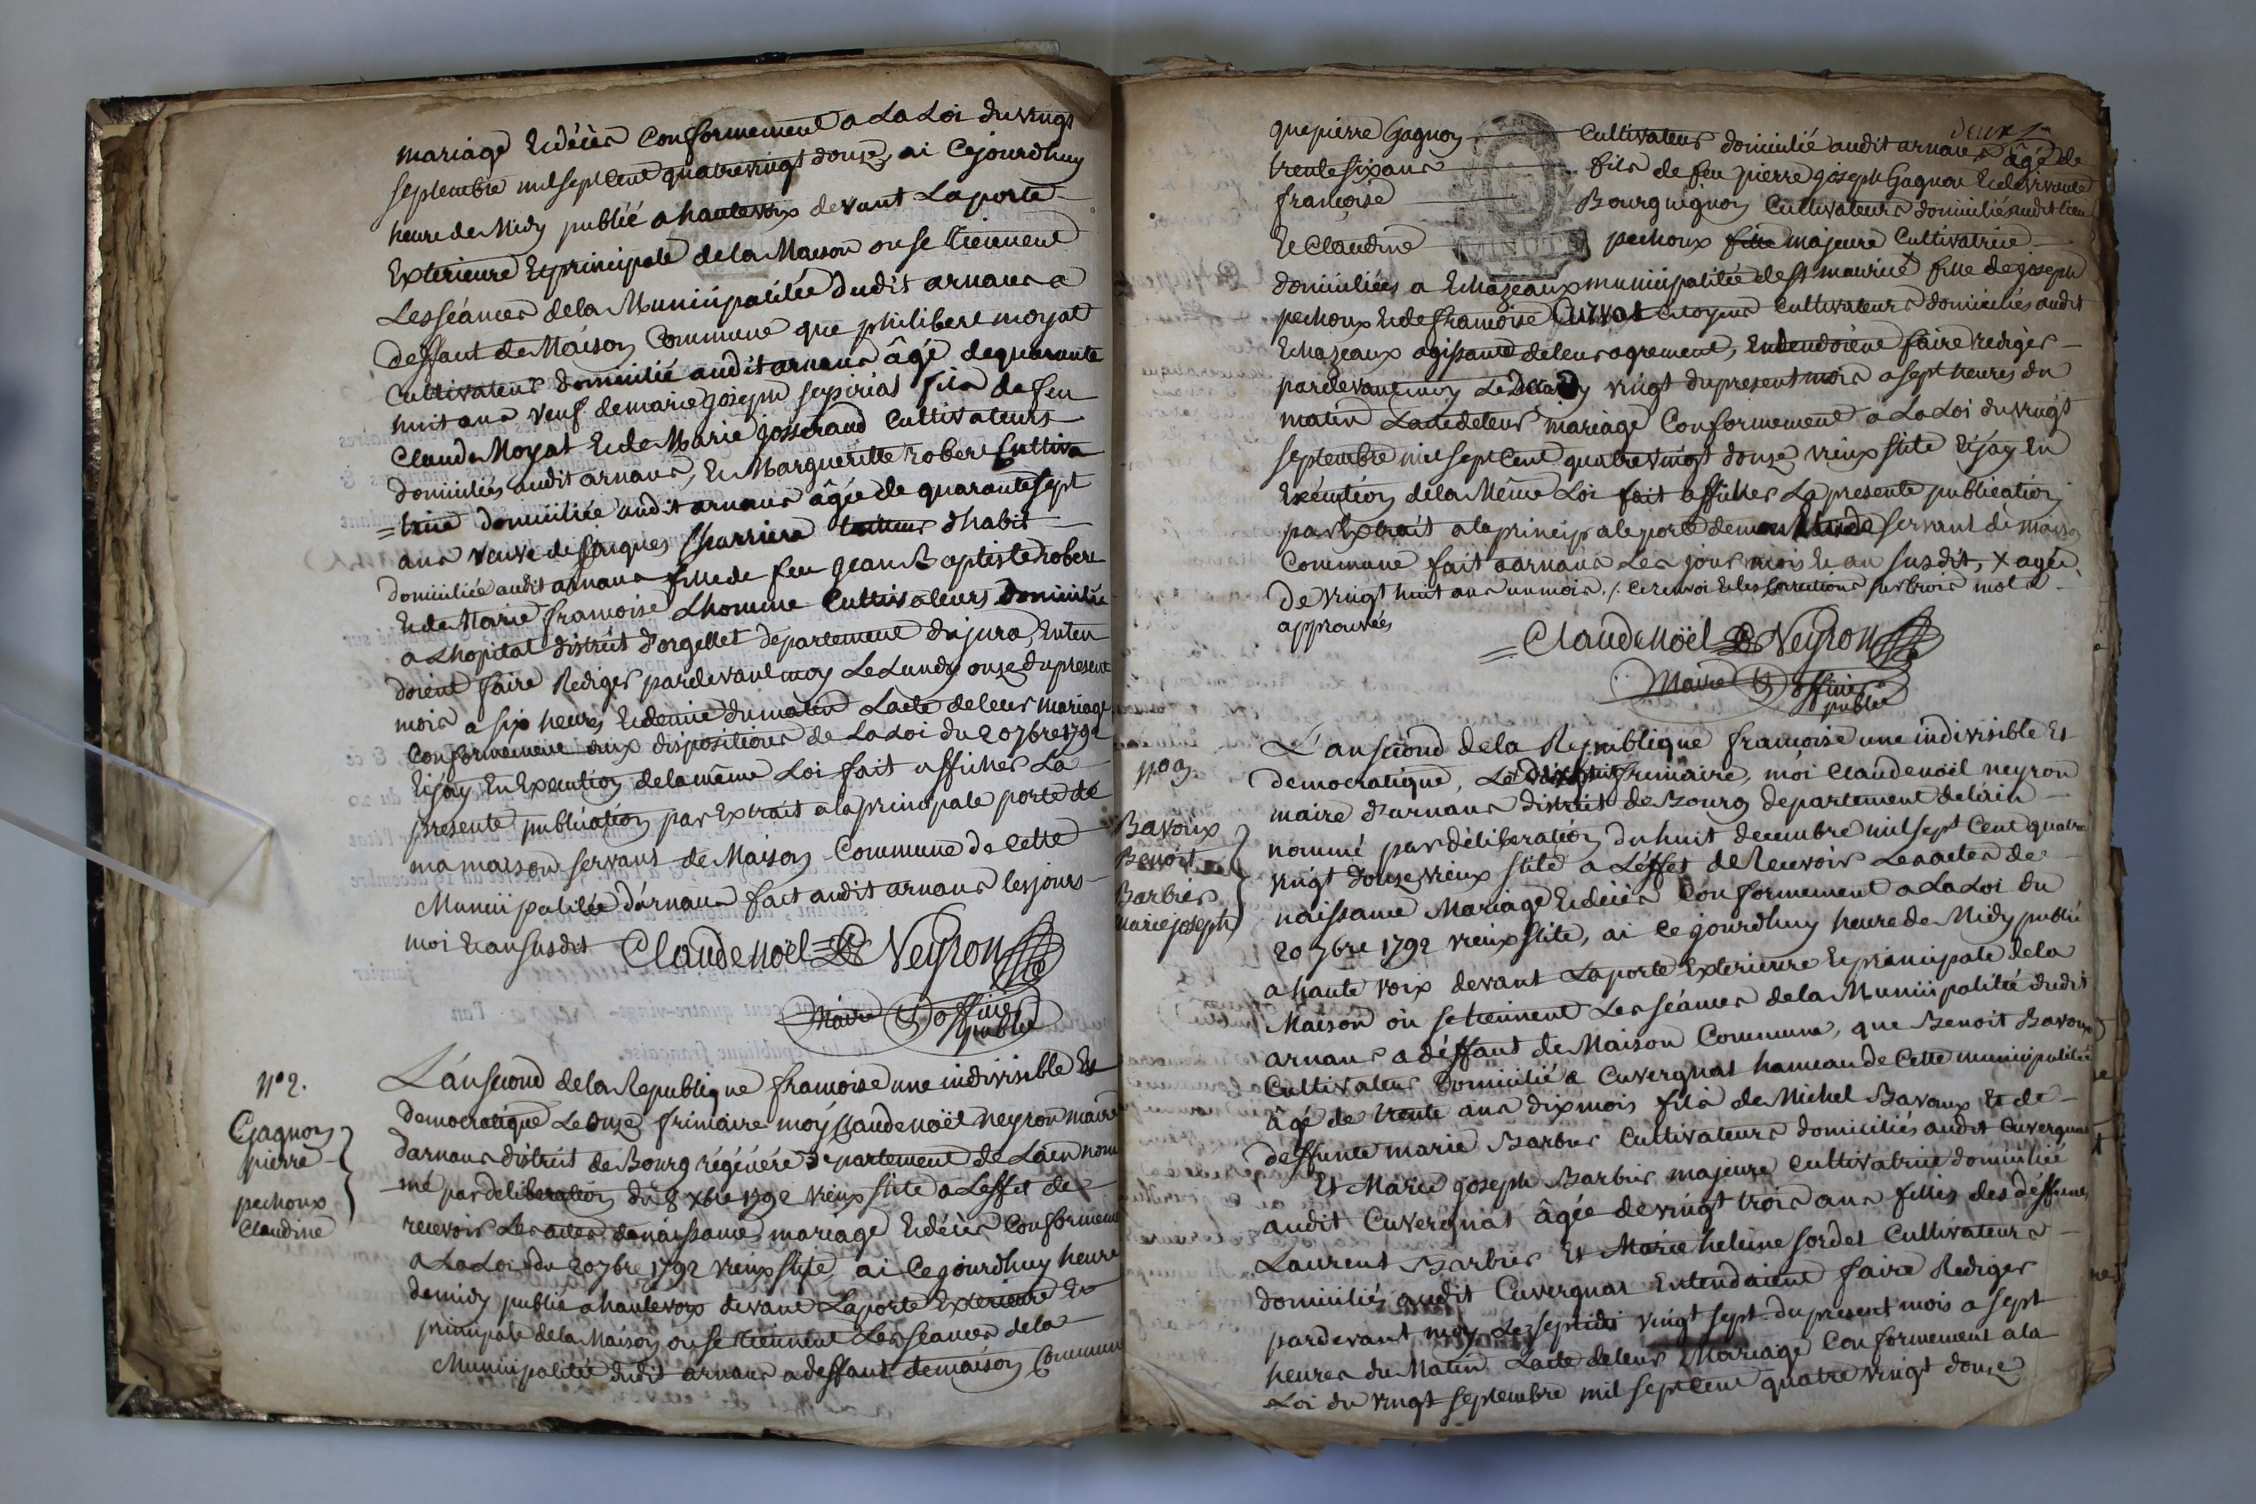 mariage Et décès Conformement a La Loi du vingt
septembre mil sept Cent quatrevingt douse, ai Cejourdhuy
heure de Midy publié a hautevoix devant Laporte
Exterieure Et principale dela Maison ou se tiennent
Les séances dela Municipalitée dudit arnans a
deffaut de Maison Commune que philibert moyat
Cultivateur domicilié audit arnans âgé de quarante
huit ans veuf de marie joseph fils de feu
Claude Moyat Et de Marie josserand Cultivateurs
domiciliés audit arnans, Et Margueritte robert Cultiva
=trice domiciliée audit arnans âgée de quarante sept
ans veuve de jacques Charriere tailleur dhabit
domiciliée audit arnans fille de feu jean Baptiste robert
Et de Marie francoise Lhomme Cultivateurs domiciliés
a Lhopital district d'orgellet departement du jura, Enten
doient faire Rediger pardevant moy Le Lundy onze du present
mois a six heures Et demie du matin Lacte de leur mariage
Conformement aux dispositions de La Loi du 20 7bre 1792
Et jay En Execution dela même Loi fait afficher La
presente publication par Extrait a la principale porte de
ma maison servant de Maison Commune de Cette
Municipalitée d'arnans fait audit arnans les jours
moi Et an susdit Claudenoël Neyron
Maire & officier
public
N° 2.
Gagnon
pierre
pechoux
Claudine
L'an second dela Republique francoise une indivisible Et
democratique Le onze frimaire moy Claudenoël neyron maire
darnans district de Bourg régénéré departement de Lain nom
mé par deliberation du 8 xbre 1792 vieux stile a Leffet de
recevoir Les actes de naissance mariage Et décès Conformement
a La Loi du 20 7bre 1792 vieux stile ai Cejourdhuy heure
de midy publié a hautevoix devant Laporte Exterieure Et
principale dela Maison ou se tiennent Les séances dela
Municipalitée dudit arnans a deffaut de maison Commune
deux
que pierre Gagnon Cultivateur domicilié audit arnans âgé de
trente six ans fils de feu pierre joseph Gagnon Et de vivante
francoise Bourguignon Cultivateurs domiciliés audit lieu
Et Claudine pechoux fille majeure Cultivatrice
domiciliées a Echazeaux municipalitée de st maurice x fille de joseph
pechoux Et de francoise Cuzvat Citoyens Cultivateurs domiciliés audit
Echazeaux agissante de leur agrement, Entendoient faire rediger
pardevant moy Le Decady vingt du present mois a sept heures du
matin Lacte de leur mariage Conformement a La Loi du vingt
septembre mil sept Cent quatre vingt douse vieux stile Et jay En
Exécution dela Même Loi fait afficher La presente publication
par Extrait a la principale porte de mon servant de maison
Commune fait a arnans Les jour mois Et an susdit, x agée
de vingt huit ans un mois ./. Ce renvoi Et les Corrections sur trois mots
approuvés
= Claudenoël Neyron
Maire & officier
public
N° 3.
Bavoux
Benoit
Barbier
marie joseph
L'an second dela Republique francoise une indivisible Et
democratique, Le dix huit frimaire, moi Claudenoël neyron
maire d'arnans district de Bourg departement de lain
nommé par déliberation du huit decembre mil sept Cent quatre
vingt douse vieux stile a Léffet de Recevoir Les actes de
naissance Mariage Et décès Conformement a La Loi du
20 7bre 1792 vieux stile, ai Ce jourdhuy heure de Midy publié
a haute voix devant Laporte Exterieure Et principale dela
Maison où se tiennent Les séances dela Municipalitée dudit
arnans a déffaut de Maison Commune, que Benoit Bavoux
Cultivateur domicilié a Cuvergnat hameau de Cette municipalitée
âgé de trente ans dix mois fils de Michel Bavoux Et de
deffunte marie Barbier Cultivateurs domiciliés audit Cuvergnat
Et Marie joseph Barbier majeure Cultivatrice domiciliée
audit Cuvergnat âgée de vingt trois ans filles des déffunts
Laurent Barbier Et Marie heleine sordet Cultivateurs
domiciliés audit Cuvergnat Entendaient faire Rediger
pardevant moy Le septidi vingt sept du present mois a sept
heures du Matin Lacte de leur Mariage Conformement a la
Loi du vingt septembre mil sept Cent quatre vingt douse